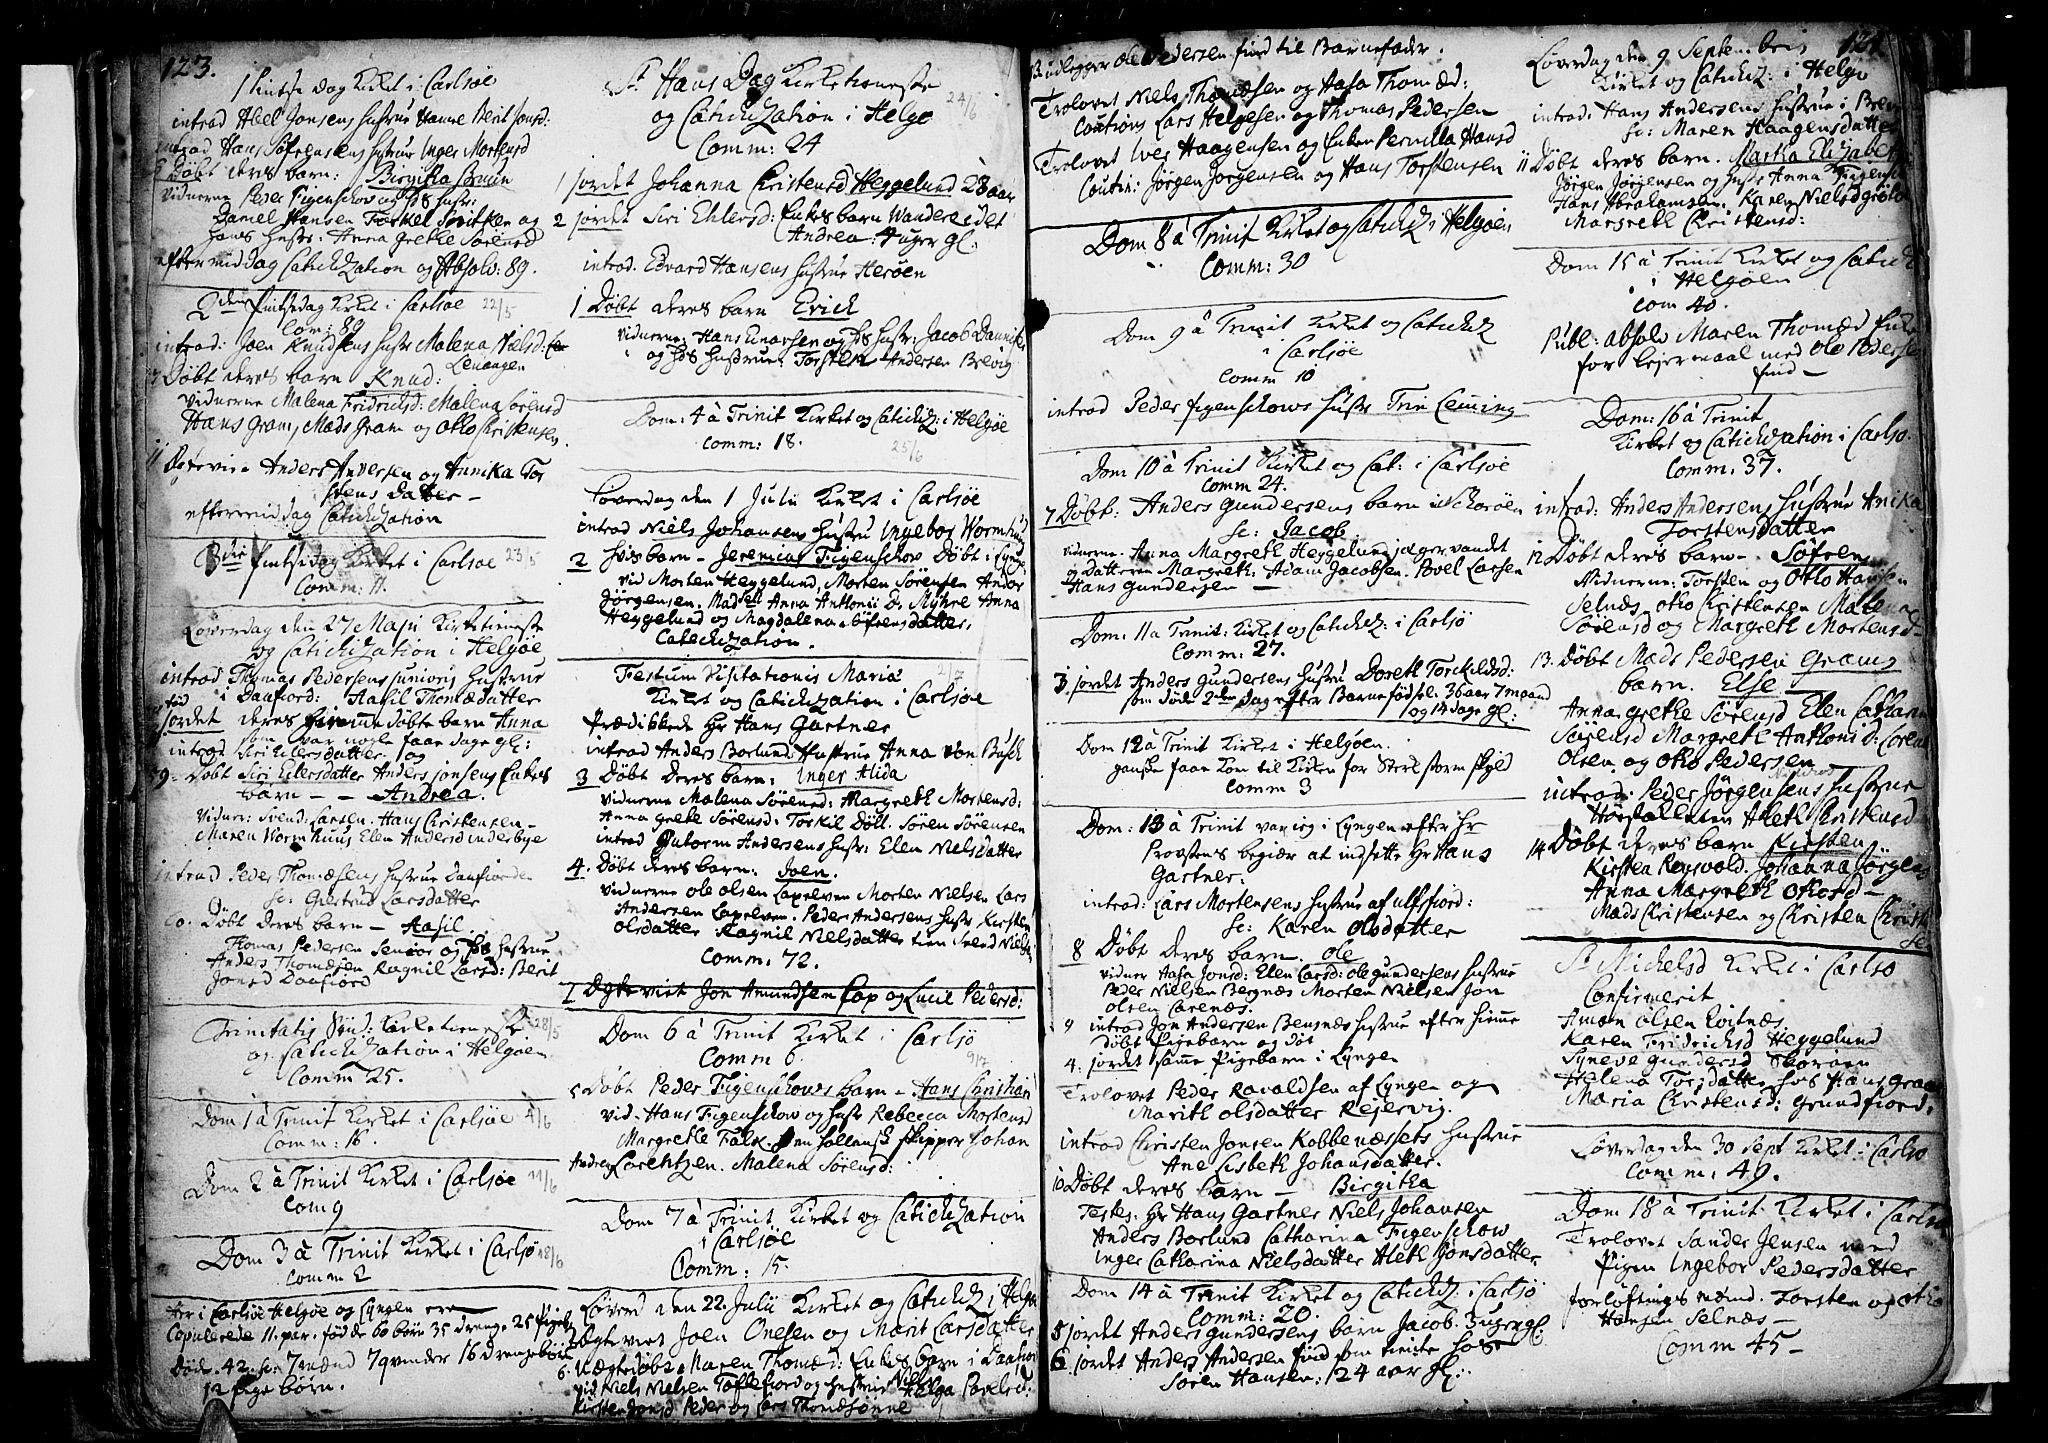 123.
1 Pintse dag Kirket i Carlsøe
introd Abel Jonsens hustrue Hanne Berit Jonsd:
introd Hans Søfrensens hustrue Inger Mortensd
Døbt deres barn: Birgitta Bruun
vidnerne Peder Figenschov og hs hustr:
Daniel Hansen Torkel Smitken og
hans hustr: Anna Grethe Sørensd
efter middag Catichization og Absolv: 89.
2den Pintsedag Kirket i Carlsøe 22/5
Com: 89
introd: Joen Knudsens hustr Malena Nielsd:
Lenangen
Døbt deres barn Knud:
vidnerne Malena Fridrichsd: Malena Sørensd
Hans Gram, Mads Gram og Otto Christensen.
11 Egtevirt Anders Andersen og Annika Tor
stens datter –
eftermiddag Catichization
3die Pintsedag Kirket i Carlsøe 23/5
Comm: 11.
Løverdag den 27 Maji Kirketienneste
og Catichization i Helgøe
introd Thomas Pedersens junioris hustrue
i Daafiord: Aasil Thomædatter
jordet deres hiemme døbte barn Anna
som var nogle faae dage gl:
introd Siri Eilersdatter og
59 Døbt Siri Eilersdatter Anders Jonsens Enkes
barn – – Andrea.
Vidner: Svend Larsen. Hans Christensen –
Maren Wormhuus Elen Andersd inderbye
introd Peder Thomæsens hustrue Daafiorden
sc: Giertrud Larsdatter
60. Døbt deres barn – Aasil.
Thomas Pedersen Senior og hs hustrue
Anders Thomæsen Ragnil Larsd: Berit
Jonsd Daafiord
Trinitatis Sønd: Kirketienneste 28/5
og Catichization i Helgøen
Comm 25.
Dom 1 à Trinit Kirket i Carlsøe 4/6
Comm: 16.
Dom 2 à Trinit Kirket i Carlsøe 11/6
Com 9
Dom 3 à Trinit Kirket i Carlsø 18/6
Comm 2
Her i Carlsøe Helgøe og Lyngen ere
Copulerede 11. par. fødde 60 børn 35 drenge 25 Piger
Døde. 42. sc: 7 mænd 7 qvinder 16 drengebørn
12 pige børn.
St Hans Dag Kirketieneste 24/6
og Catichization i Helgø
Comm: 24
1 jordet Johanna Christensd Heggelund 28 aar
2 jordet Siri Ehlersd: Enkes barn Wandereidet
Andrea: 4 uger gl:
introd. Edvard Hansens hustrue Herøen
1 Døbt deres barn Erich
Vidnerne: Hans Enarsen og hs hustr: Jacob Dannich
og hs hustrue: Torsten Andersen Brevig
Dom: 4 à Trinit Kirket og Catichiz: i Helgøe
Comm: 18. 25/6
Løverdag den 1 Julii Kirket i Carlsøe
introd Niels Johansens hustru Ingebog Wormhuus
2 hvis barn – Jeremias Figenschov Døbt i Lyngen
vid Morten Heggelund, Morten Sørensen Ander
Jørgensen. Madsell Anna Anthonii D. Myhre Anna
Heggelund og Magdalena Søfrensdatter.
Catechization.
Festum Visitationis Mariæ 2/7
Kirket og Catichization i Carlsøe
Prædikkede Hr Hans Gartner
introd Anders Borlund Hustrue Anna von Busch
3 Døbt deres barn: Inger Alida
vidnerne Malena Sørensd: Margreth Mortensd:
Anna Grete Sørensd: Torkil Doll. Søren Sørensen
introd Gutorm Andersens hustr: Elen Nielsdatter
4. Døbt deres barn: Joen.
vidnerne Ole Olsen Lapelven Morten Nielsen Lars
Andersen Lapelven. Peder Andersens hustr. Kirsten
Olsdatter Ragnil Nielsdatter tien Svend Niels
Comm: 72.
1 Egteviet Jon Amundsen Lap og Lucil Pedersd:
Dom 6 à Trinit Kirket i Carlsø
Comm 6. 9/7
5 Døbt Peder Figenschows barn – Hans Christian
vid. Hans Figenschow og hustr Rebecca Mortensd
Margrethe Falk. Den hollensk skipper Johan
Andreas Lorentzen. Malena Sørensd:
Dom 7 à Trinit Kirket og Catichization
i Carlsøe
Comm: 15.
Løverd den 22. Julii Kirket og Catichiz i Helgø
Egteviet Joen Onesen og Marit Larsdatter
6. Uægtedøbt Maren Thomæd: Enkes barn i Daafior
vid Niels Nielsen Toftefiord og hustrue Helga Povelsd:
Kirsten Jonsd Peder og Lars Thomæsønne
124
Udlegger Ole Pedersen find til Barnefader.
Trolovet Niels Thomæsen og Aasa Thomæd:
Coutions Lars Helgesen og Thomas Pedersen
Trolovet Iver Haagensen og Enken Pernilla Hansd
Coution: Jørgen Jørgensen og Hans Torstensen
Dom 8 à Trinit Kirket og Catichiz i Helgøen
Comm: 30
Dom 9 à Trinit Kirket og Catichiz
i Carlsøe
Comm 10
introd Peder Figenschows hustr Trin Lemming
Dom 10 à Trinit Kirket og Cat: i Carlsøe
Comm 24.
7 Døbt: Anders Gundersens barn i Skorøen
sc: Jacob
vidnerne. Anna Margreth Heggelund Jæger. vandet
og Datteren Margreth. Adam Jacobsen. Povel Larsen
Hans Gundersen –
Dom: 11 a Trinit: Kirket og Catichiz: i Carlsø
Comm: 27.
3. jordet Anders Gundersens hustru Doreth Torchildsd:
som døde 2den dag efter Barnefødsel. 36 aar 7 maaned
og 14 dage gl:
Dom 12 à Trinit Kirket i Helgøen.
ganske faae Kom til Kirken for Sterk storm skyld
Comm 3
Dom: 13 à Trinit var jeg i Lyngen efter Hr
Provstens begiær at indsette Hr Hans
Gartner:
introd: Lars Mortensens hustrue af Ulfsfiord:
sc: Karen Olsdatter
8 Døbt deres barn. Ole
vidner Aasa Jonsd: Elen Larsd: Ole Gundersens hustrue
Peder Nielsen Bergnæs Morten Nielsen Jon
Olsen Carenæs.
9 introd Jon Andersen Bensnæs hustrue efter hiemme
døbt Pigebarn og døt
4. jordet samme Pigebarn i Lyngen
Trolovet Peder Ravaldsen af Lyngen og
Marith Olsdatter Rejervig.
introd Christen Jonsen Kobbenæssets hustrue
Ane Lisbeth Johansdatter.
10 Døbt deres barn – Birgitha
Testes: Hr Hans Gartner Niels Johansen
Anders Borlund Catharina Figenschow
Inger Catharina Nielsdatter Aleth Jonsdatter
Dom 14 à Trinit Kirket og Catichiz: i Carlsø
Comm: 20.
5 jordet Anders Gundersens barn Jacob. 3 uger gl:
6 jordet Anders Andersen find som tiente hos
Søren Hansen: 24 aar gl:
Løverdag den 9 Septembris
Kirket og Catichiz: i Helgø
introd: Hans Andersens hustrue i Brevi
sc: Maren Haagensdatter
11 Døbt deres barn. Martha Elizabeth
Jørgen Jørgensen og hustr Anna Jørgensd
Hans Abrahamsen. Karen Nielsd Grøtø
Margreth Christensd:
Dom 15 à Trinit Kirket og Catich
i Helgøen
Com 40.
Publ: absolv Maren Thomæd Enke
for lejermaal med Ole Pedersen
find –
Dom: 16 à Trinit
Kirket og Catichization i Carlsø.
Comm: 37.
introd: Anders Andersens hustrue Anika
Torstensdatter
12 Døbt deres barn – Søfren
Vidnerne: Torsten og Otto Hansen
Selnæs. Otto Christensen Malena
Sørensd og Margreth Mortensd –
13. Døbt Mads Pedersen Grams
barn. Else –
Anna Grethe Sørensd Elen Cathari
Sørensd Margreth Anthonisd: Loren
Olsen og Otto Pedersen
introd: Peder Jørgensens hustrue
Aleth Christensd
14 Døbt deres barn Kirsten
Kirsten Rønvold. Johanna Jørgens
Anna Margreth Ottosd –
Mads Christensen og Christen Christ
St Michelsd Kirket i Carlsø
Confirmerit
Amon Olsen Kvitnæs
Karen Fridrichsd Heggelund
Syneve Gundersd Skorøen
Helena Torsdatter hos Hans Gram
Maria Christensd: Grundfiord.
Løverdag den 30 Sept Kirket i Carlsø
Comm: 49.
Dom 18 à Trinit: Kirket i Carlsø
Trolovet Sander Jensen med
Pigen Ingebor Pedersdatter
forløftnings mænd. Torsten og Otto
Hansen Selnæs –
Comm 45 –